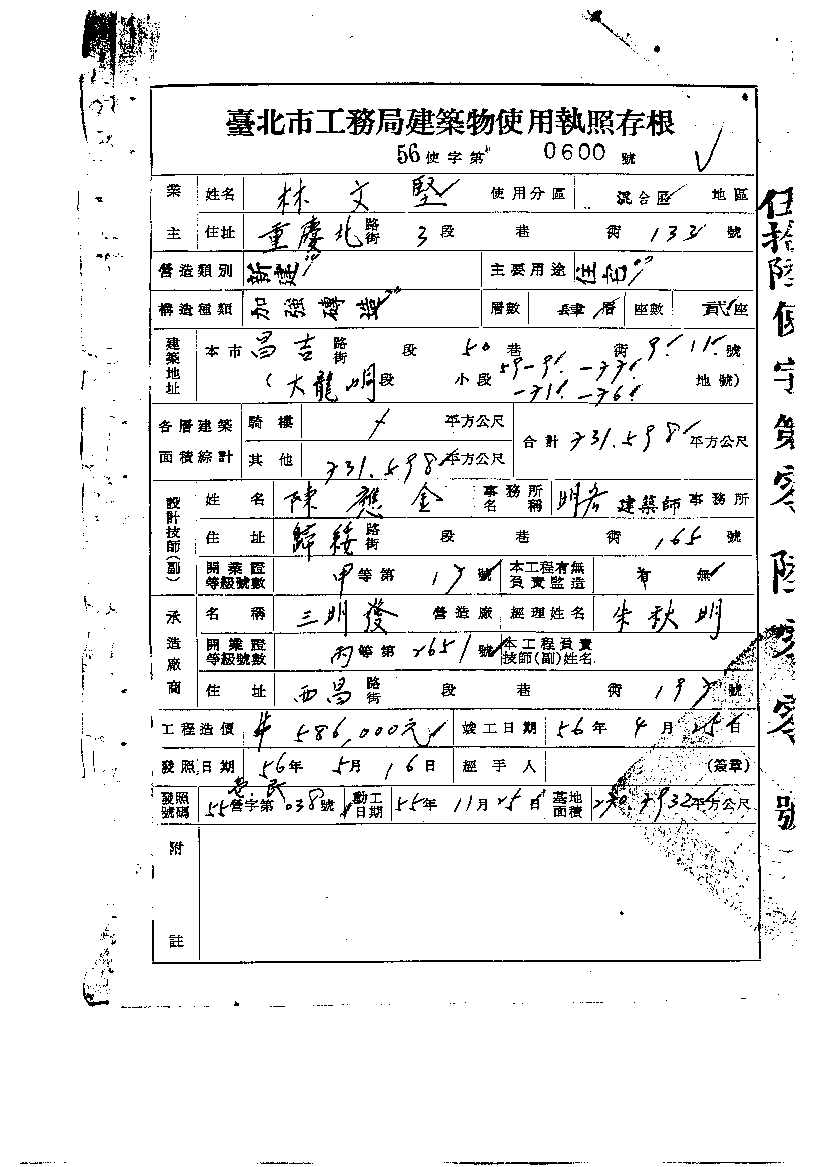 臺北市工務局建築物使用執照存根
56使字第 0600 號
業主 姓名 林文堅 使用分區 混合區 地區
住址 重慶北 路街 3段 巷 衖 132號
營造類別 新建 主要用途 住宅
構造種類 加強磚造 層數 肆層 座數 貳座
建築地址 本市 昌吉 路街 段 50巷 衖 9.11.號
(大龍峒段 小段 59-9. 地號)
各層建築面積綜計 騎樓 平方公尺 合計 731.598 平方公尺
其他 731.598 平方公尺
設計技師(副) 姓名 陳應金 事務所名稱 明宏 建築師事務所
住址 歸綏 路街 段 巷 衖 165號
開業證等級號數 甲等第 17號 本工程有無負責監造 有 無
承造廠商 名稱 三明發 營造廠 經理姓名 朱秋明
開業證等級號數 丙等第 2651號 本工程負責技師(副)姓名
住址 西昌 路街 段 巷 衖 197號
工程造價 # 586,000元 竣工日期 56年 4月 25日
發照日期 56年 5月 16日 經手人 (簽章)
發照號碼 55營字第 038號 動工日期 55年 11月 25日 基地面積 平方公尺
附註
伍拾陸使字第零陸零零號